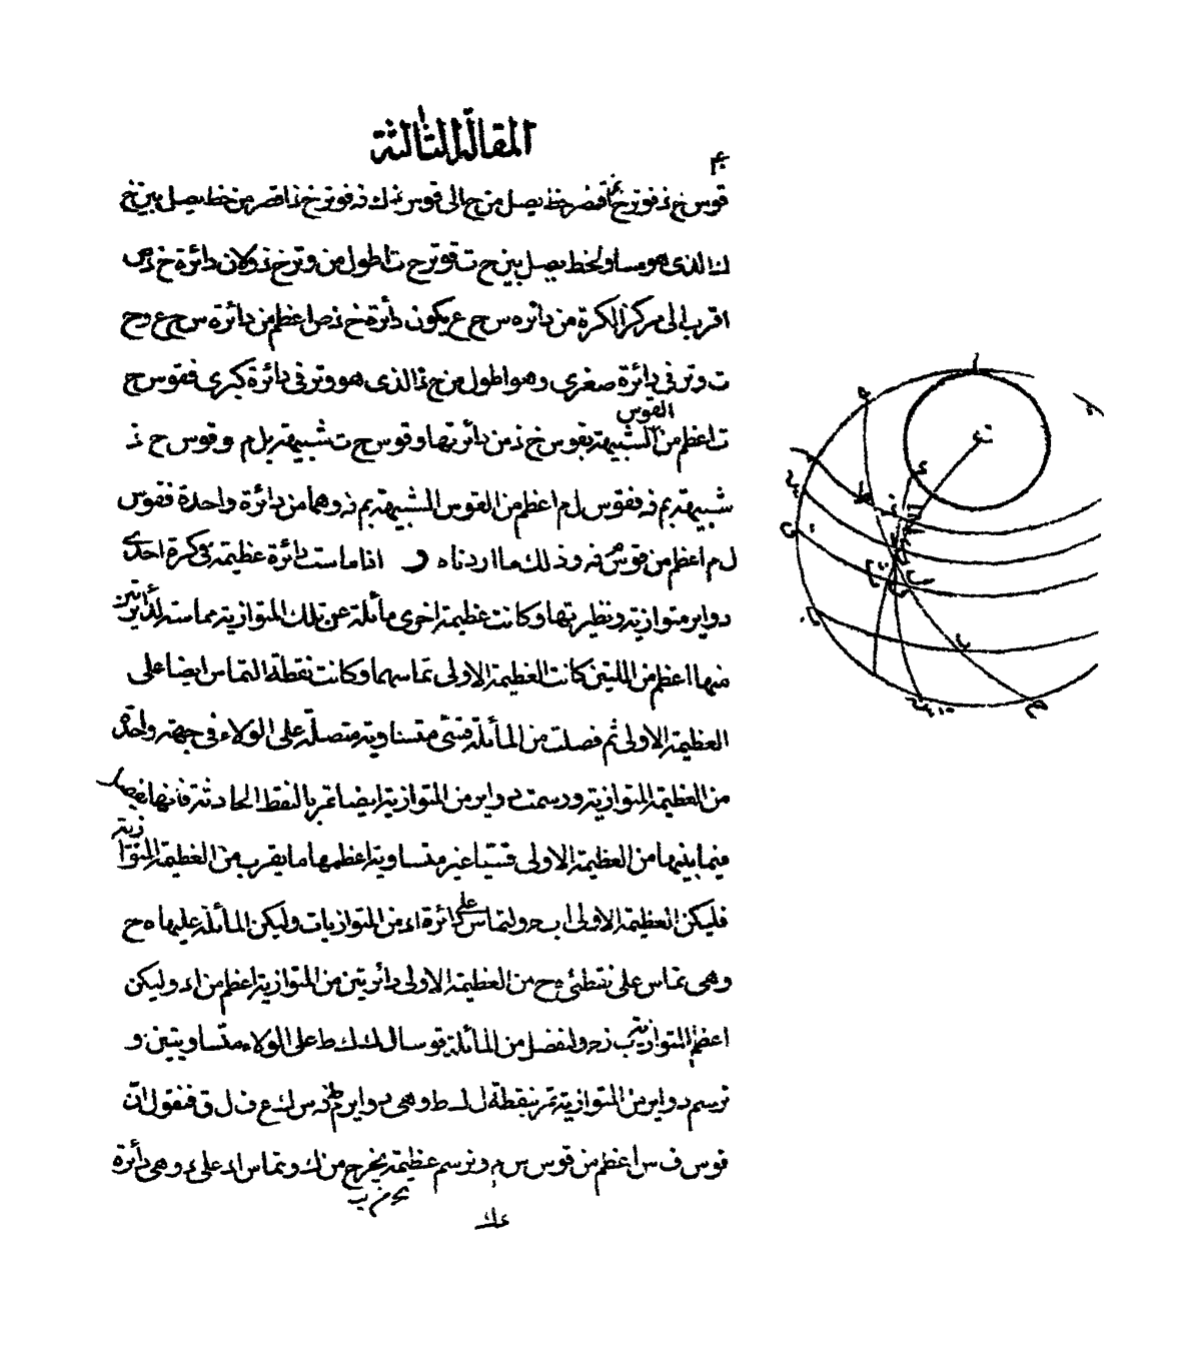 المقالة الثالثة
قوس خ ذ فوتر خ ذ اقصر خط يصل من خ الى قوس ذ ك ذ فوتر خ ذ اقصر من خط يصل بين خ
ك الذى هو مساو لخط يصل بين ح ت فوتر ح ت اطول من وتر خ ذ ولان دائرة خ ذ ص
اقرب الى مركز الكرة من دائره س ح ع يكون دائرة خ ذ ص اعظم من دائرة س ح ع و ح
ت وتر فى دائرة صغرى وهو اطول من خ ذ الذى هو وتر فى دائرة كبرى فقوس ح
القوس
ت اعظم من الشبيهة بقوس خ ذ من دائرتها وقوس ح ت شبيهة بل م وقوس خ ذ
شبيهة بم نه فقوس ل م اعظم من القوس الشبيهة بم نه وهما من دائرة واحدة فقوس
ل م اعظم من قوس م نه وذلك ما اردناه و اذا ماست دائرة عظيمة فى كرة احدى
دواير متوازية ونظيرتها وكانت عظيمة اخرى مائلة عن تلك المتوازية مماسة لدائرتين
منها اعظم من اللتين كانت العظيمة الاولى تماسهما وكانت نقطة التماس ايضا على
العظيمة الاولى ثم فصلت من المائلة قسى متساوية متصلة على الولاء فى جهة واحدة
من العظيمة المتوازية ورسمت دواير من المتوازية ايضا تمر بالنقط الحادثة فانها تفصل
فيما بينها من العظيمة الاولى قسيا غير متساوية اعظمها ما يقرب من العظيمة المتوازية
فليكن العظيمة الاولى ا ب ح ولتماس على دائرة ا ء من المتوازيات وليكن المائلة عليها ه ح
وهى تماس على نقطتى ه ح من العظيمة الاولى دائرتين من المتوازية اعظم من ا ء وليكن
اعظم المتوازية ب ز ح ولنفصل من المائلة قوسا ل ك ك ط على الولاء متساويتين و
نرسم دواير من المتوازية تمر بنقطة ل ك ط وهى دواير م ط نه س ك ع ف ل ق فنقول ان
قوس ف س اعظم من قوس س م ونرسم عظيمة يخرج من ك وتماس ا ء على ء وهى دائرة
ء ك